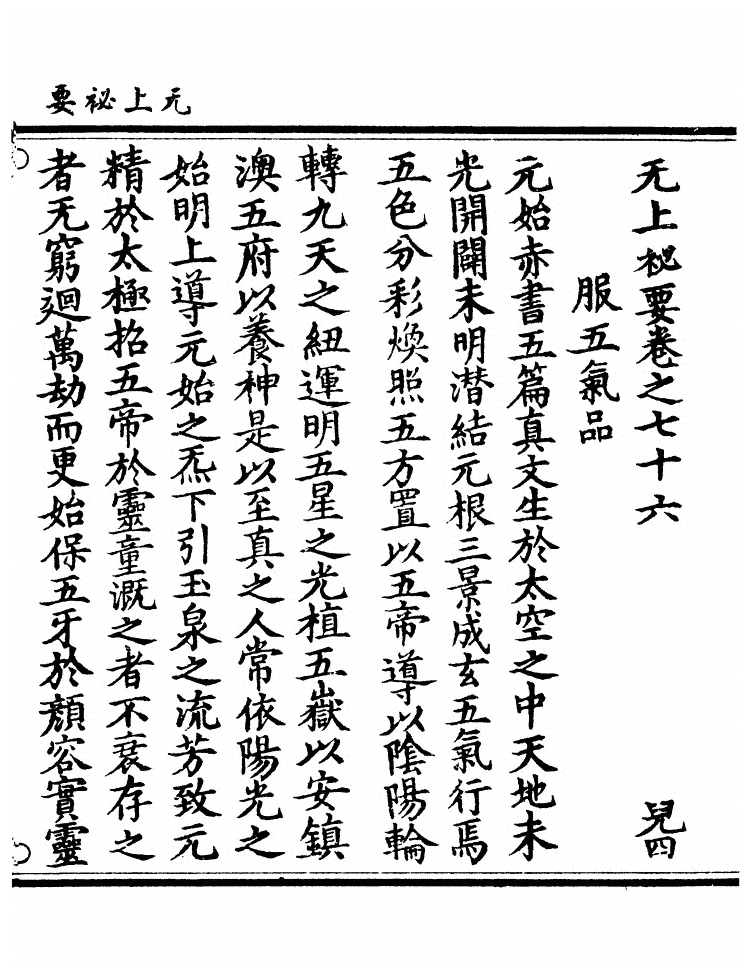 无上祕要
无上祕要卷之七十六
兒四
服五氣品
元始赤書五篇真文生於太空之中天地未
光開闢未明潜結元根三景成玄五氣行焉
五色分彩煥照五方置以五帝導以陰陽輪
轉九天之紐運明五星之光植五嶽以安鎮
澳五府以養神是以至真之人常依陽光之
始明上導元始之炁下引玉泉之流芳致元
精於太極招五帝於靈童溉之者不衰存之
者无窮廻萬劫而更始保五牙於顏容實靈